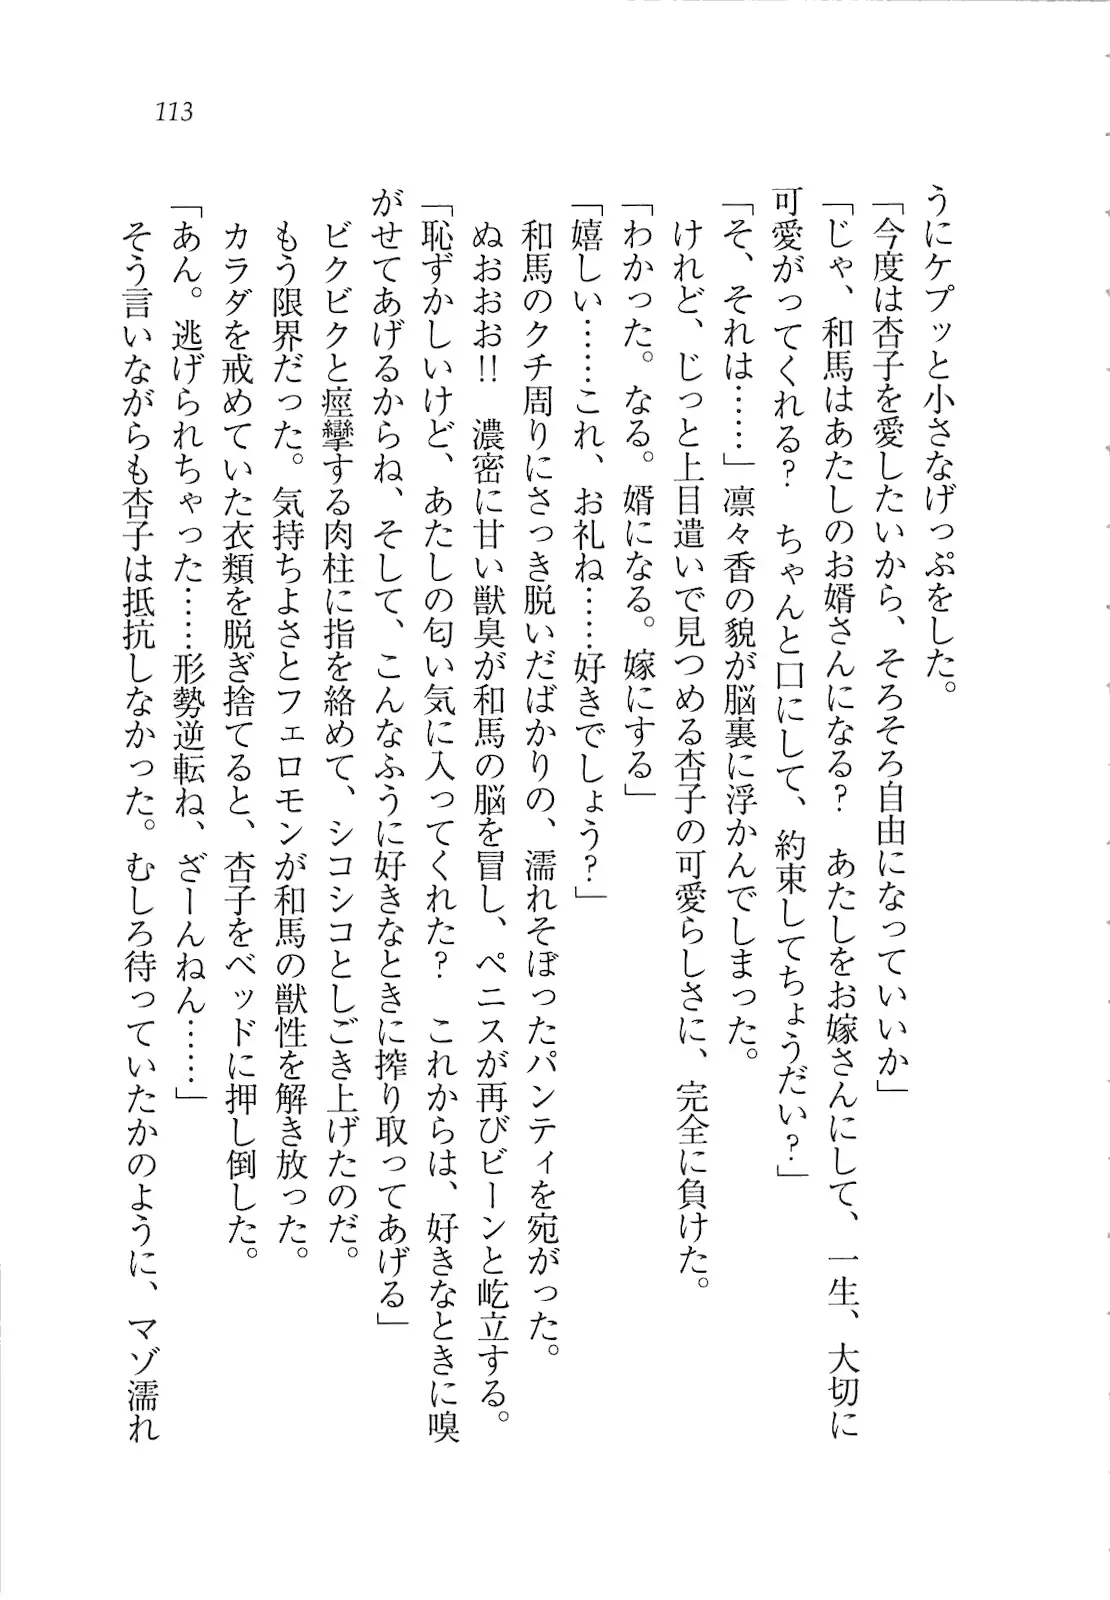 113
うにケプッと小さなげっぷをした。
「今度は杏子を愛したいから、そろそろ自由になっていいか」
「じゃ、和馬はあたしのお婿さんになる？　あたしをお嫁さんにして、一生、大切に
可愛がってくれる？　ちゃんと口にして、約束してちょうだい？」
「そ、それは……」凛々香の貌が脳裏に浮かんでしまった。
けれど、じっと上目遣いで見つめる杏子の可愛らしさに、完全に負けた。
「わかった。なる。婿になる。嫁にする」
「嬉しい……これ、お礼ね……好きでしょう？」
和馬のクチ周りにさっき脱いだばかりの、濡れそぼったパンティを宛がった。
ぬおおお!!　濃密に甘い獣臭が和馬の脳を冒し、ペニスが再びビーンと屹立する。
「恥ずかしいけど、あたしの匂い気に入ってくれた？　これからは、好きなときに嗅
がせてあげるからね、そして、こんなふうに好きなときに搾り取ってあげる」
ビクビクと痙攣する肉柱に指を絡めて、シコシコとしごき上げたのだ。
もう限界だった。気持ちよさとフェロモンが和馬の獣性を解き放った。
カラダを戒めていた衣類を脱ぎ捨てると、杏子をベッドに押し倒した。
「あん。逃げられちゃった……形勢逆転ね、ざーんねん……」
そう言いながらも杏子は抵抗しなかった。むしろ待っていたかのように、マゾ濡れ